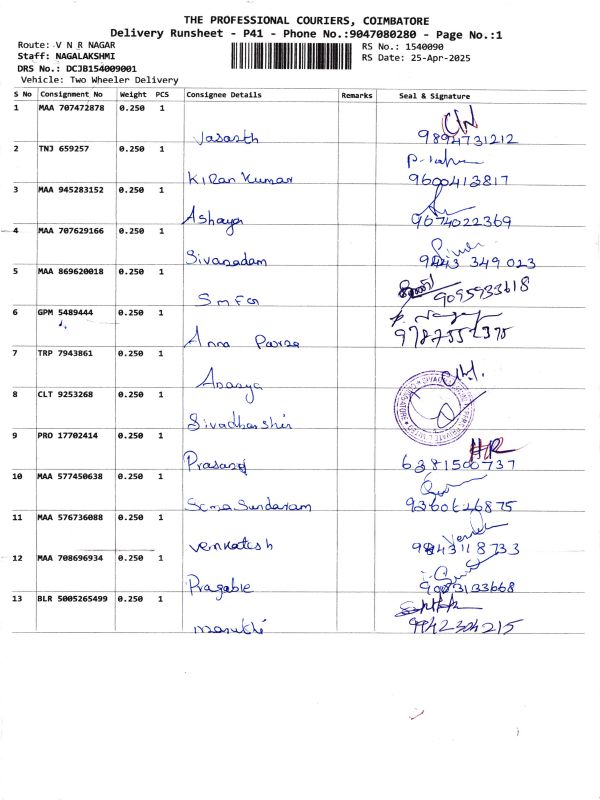 THE PROFESSIONAL COURIERS, COIMBATORE
Delivery Runsheet - P41 - Phone No.:9047080280 - Page No.:1
Route: V N R NAGAR RS No.: 1540090
Staff: NAGALAKSHMI RS Date: 25-Apr-2025
DRS No.: DCJB154009001
Vehicle: Two Wheeler Delivery
S No Consignment No Weight PCS Consignee Details Remarks Seal & Signature
1 MAA 707472878 0.250 1
Vasasth 9894731212
2 TNJ 659257 0.250 1
Kiran Kumar 9600413817
3 MAA 945283152 0.250 1
Ashaya 9674022369
4 MAA 707629166 0.250 1
Sivasadam 9443 349 023
5 MAA 869620018 0.250 1
Smfa 9095933618
6 GPM 5489444 0.250 1
Anna 9787552375
7 TRP 7943861 0.250 1
8 CLT 9253268 0.250 1
Sivadharshin
9 PRO 17702414 0.250 1
Prasand 6381500737
10 MAA 577450638 0.250 1
Soma Sundaram 9360626875
11 MAA 576736088 0.250 1
venkatesh 9843118733
12 MAA 708696934 0.250 1
Pragable 9003133668
13 BLR 5005265499 0.250 1
9942304215